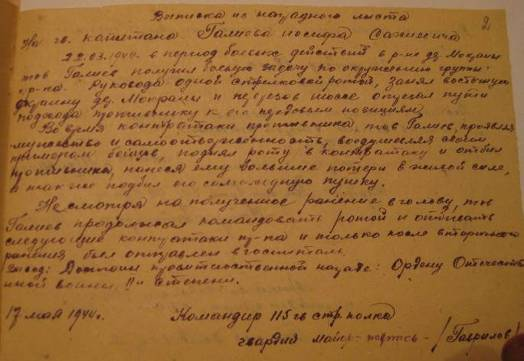 Выписка из наградного листа
2
На гв. капитана Галиева Иосифа
22.03.1944 в период боевых действий в р-не дер. Мокраны
тов Галиев получил боевую задачу по окружению группы
пр-ка. Руководя одной стрелковой ротой, занял восточную
окраину дер. Мокраны и перерезав шоссе отрезал пути
подхода противнику к его прежним позициям.
Во время контратаки противника, тов Галиев, проявляя
мужество и самоотверженность, воодушевляя своим
примером бойцов, поднял роту в контратаку и отбил
противника, нанеся ему большие потери в живой силе,
а так же подбил его самоходную пушку.
Несмотря на полученное ранение в голову, тов
Галиев продолжал командовать ротой и отбивать
следующие контратаки пр-ка и только после вторичного
ранения был отправлен в госпиталь.
Вывод: Достоин правительственной награде: Ордену Отечестве
нной войны II степени.
17 мая 1944г. Командир 115 гв стр полка
гвардии майор - подпись - /Гаврилов/